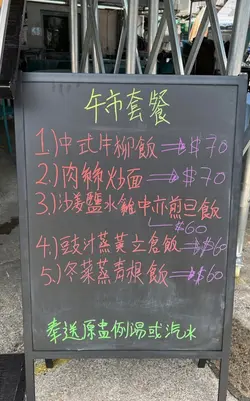 午市套餐
1.)中式牛柳飯→$70
2.)肉絲炒面→$70
3.)沙姜鹽水雞中亦煎旦飯
→$60
4.)豉汁蒸黃立倉飯→$60
5.)冬菜蒸青根飯→$60
奉送原盅例湯或汽水